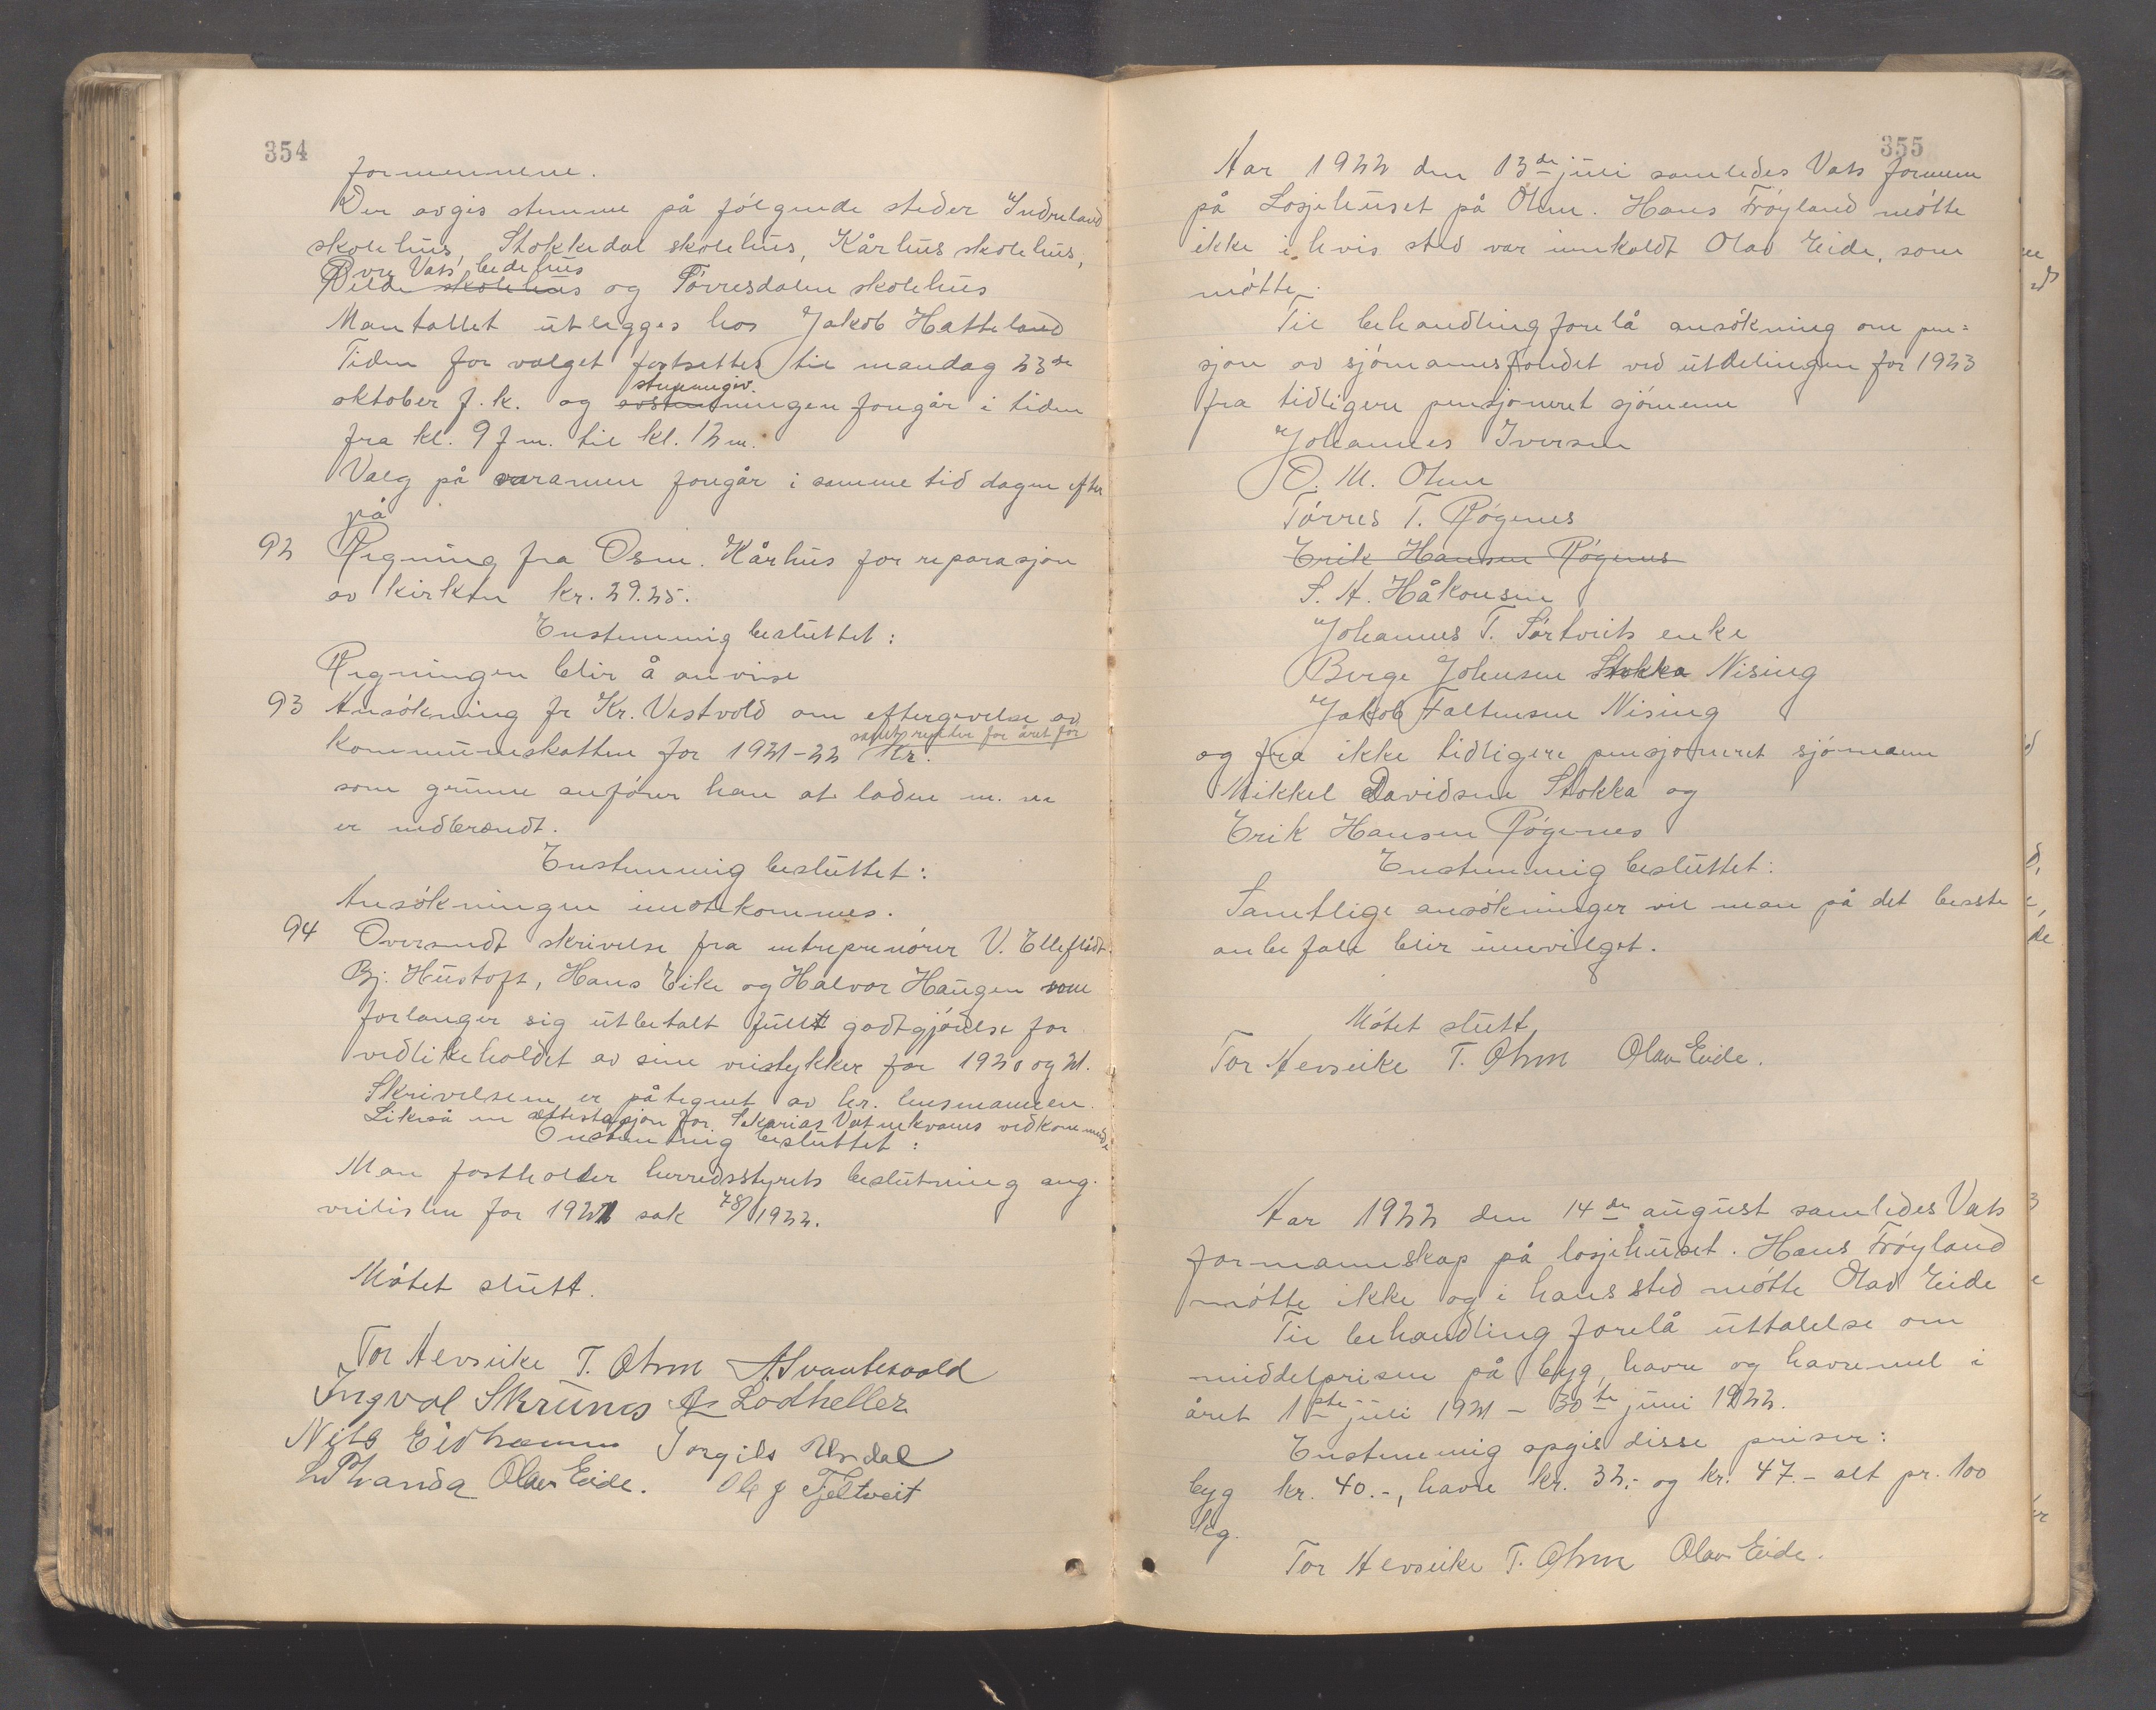 354
formennene.
Der avgis stemme på fölgende steder Indreland
skolehus, Stokkedal skolehus, Kårhus skolehus,
Övre Vats bedehus
skolehus og Törresdalen skolehus
Mantallet utlegges hos Jakob Hatteland
Tiden for valget fastsettes til mandag 23de
stemmegiv.
oktober f.k. og ningen foregår i tiden
fra kl. 9 fm. til kl. 12 m.
Valg på varamen foregår i samme tid dagen efter
på
92 Regning fra Osm. Kårhus for reparasjon
av kirken kr. 29.25.
Enstemmig besluttet:
Regningen blir å anvise
93 Ansökning fr Kr. Vestvold om eftergivelse av
samt renter for året för
kommuneskatten for 1921-22 Kr.
som grunne anförer han at laden m. m
er nedbrændt.
Enstemmig besluttet:
Ansökningen imötekommes.
94 Oversendt skrivelse fra entreprenörer V. Elleflådt
Bj. Hustoft, Hans Eike og Halvor Haugen som
forlanger sig utbetalt fullt godtgjörelse for
vedlikeholdet av sine veistykker for 1920 og 21.
Skrivelsen er påtegnet av hr. lensmannen.
Likeså en attestasjon for Sekarias Vatnekvams vedkommende
Enstemmig besluttet:
Man fastholder herredsstyrets beslutning ang.
veilisten for 1921 sak 78/1922.
Mötet slutt.
Tor Aevseike T. Ohm A. Svantesvold
Ingval Skrunes Lodheller
Nils Eidhammer Torgils Urdal
Olav Eide. Ole J Fjeltveit
355
Aar 1922 den 13de juli samledes Vats formen
på Losjehuset på Ölen. Hans Fröyland mötte
ikke i hvis sted var innkaldt Olav Eide, som
mötte.
Til behandling forelå ansökning om pen=
sjon av sjömannsfondet ved utdelingen for 1923
fra tidligere pensjoneret sjömenn
Johannes Iversen
O. M. Ohm
Törres T. Rögenes
Erik Hansen Rögenes
S. A. Håkonsen
Johannes T. Sörtveits enke
Berge Johnsen Stokka Nising
Jakob Faltensen Nising
og fra ikke tidligere pensjoneret sjömann
Mikkel Davidsen Stokka og
Erik Hansen Rögenes
Enstemmig besluttet:
Samtlige ansökninger vil man på det beste
anbefale blir innvilget.
Mötet slutt
Tor Aevseike T. Ohm Olav Eide.
Aar 1922 den 14de august samledes Vats
formannskap på losjehuset. Hans Fröyland
mötte ikke og i hans sted mötte Olav Eide
Til behandling forelå uttalelse om
middelprisen på byg, havre og havremel i
året 1ste juli 1921 - 30te juni 1922.
Enstemmig opgis disse priser:
byg kr. 40.-, havre kr. 32.- og kr. 47.- alt pr. 100
kg.
Tor Aevseike T. Ohm Olav Eide.